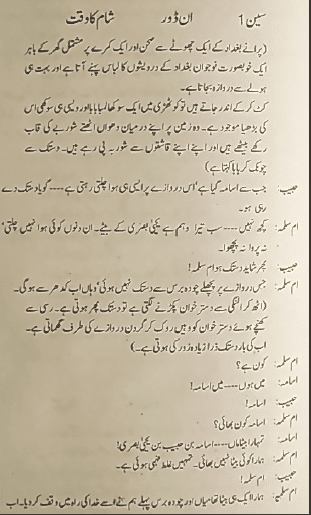 سین 1 ان ڈور شام کا وقت
(پرانے بغداد کے ایک چھوٹے سے صحن اور ایک کمرے پر مشتمل گھر کے باہر
ایک خوبصورت نوجوان بغداد کے درویشوں کا لباس پہنے آتا ہے اور بہت ہی
ہولے سے دروازہ بجاتا ہے۔
کٹ کر کے اندر جاتے ہیں تو کوٹھڑی میں ایک سوکھا سا بابا اور ویسی ہی سوکھی اس
کی بڑھیا موجود ہے۔ وہ زمین پر اپنے درمیان دھواں اٹھتے شوربے کی قاب
رکھے بیٹھے ہیں اور اپنے اپنے قاشقوں سے شوربہ پی رہے ہیں۔ دستک سے
چونک کر بابا کہتا ہے)
حبیب: جب سے اسامہ گیا ہے' اس دروازے پر ایسی ہی ہوا چلتی رہتی ہے ---- گویا دستک دے
رہی ہو۔
ام سلمہ: کچھ نہیں ---- سب تیرا وہم ہے یحییٰ بصری کے بیٹے۔ ان دنوں کوئی ہوا نہیں چلتی'
نہ پروا نہ پچھوا۔
حبیب: پھر شاید دستک ہو ام سلمہ!
ام سلمہ: جس دروازے پر پچھلے چودہ برس سے دستک نہیں ہوئی' وہاں اب کدھر سے ہو گی۔
(اٹھ کر الگنی سے دسترخوان پکڑنے لگتی ہے تو دستک پھر ہوتی ہے۔ رسی سے
کھنچے ہوئے دسترخوان کو وہیں روک کر گردن دروازے کی طرف گھماتی ہے۔
اب کی بار دستک ذرا زیادہ زور کی ہوتی ہے۔)
ام سلمہ: کون ہے؟
اسامہ: میں ہوں ---- میں اسامہ!
حبیب: اسامہ!
ام سلمہ: اسامہ کون بھائی؟
اسامہ: تمہارا بیٹا ماں ---- اسامہ بن حبیب بن یحییٰ بصری!
ام سلمہ: ہمارا کوئی بیٹا نہیں بھائی۔ تمہیں غلط فہمی ہوئی ہے۔
حبیب: ام سلمہ!
ام سلمہ: ہمارا ایک ہی بیٹا تھا میاں اور چودہ برس پہلے ہم نے اسے خدا کی راہ میں وقف کر دیا۔ اب